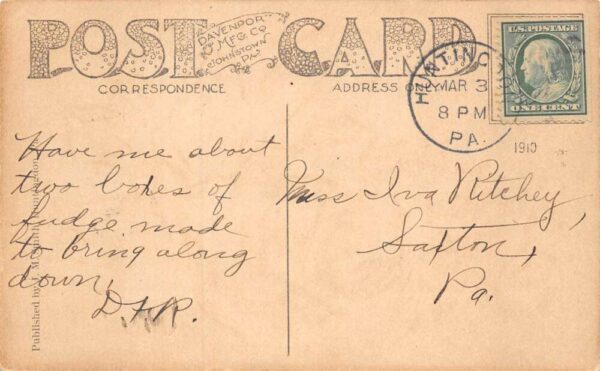 POST CARD
DAVENPORT
MFG CO
JOHNSTOWN
PA.
CORRESPONDENCE
ADDRESS ONLY
MAR 3
8 PM
PA.
1910
U.S. POSTAGE
ONE CENT
Have me about
two boxes of
fudge made
to bring along
down,
Miss Iva Ritchey,
Saxton,
Pa.
Published by